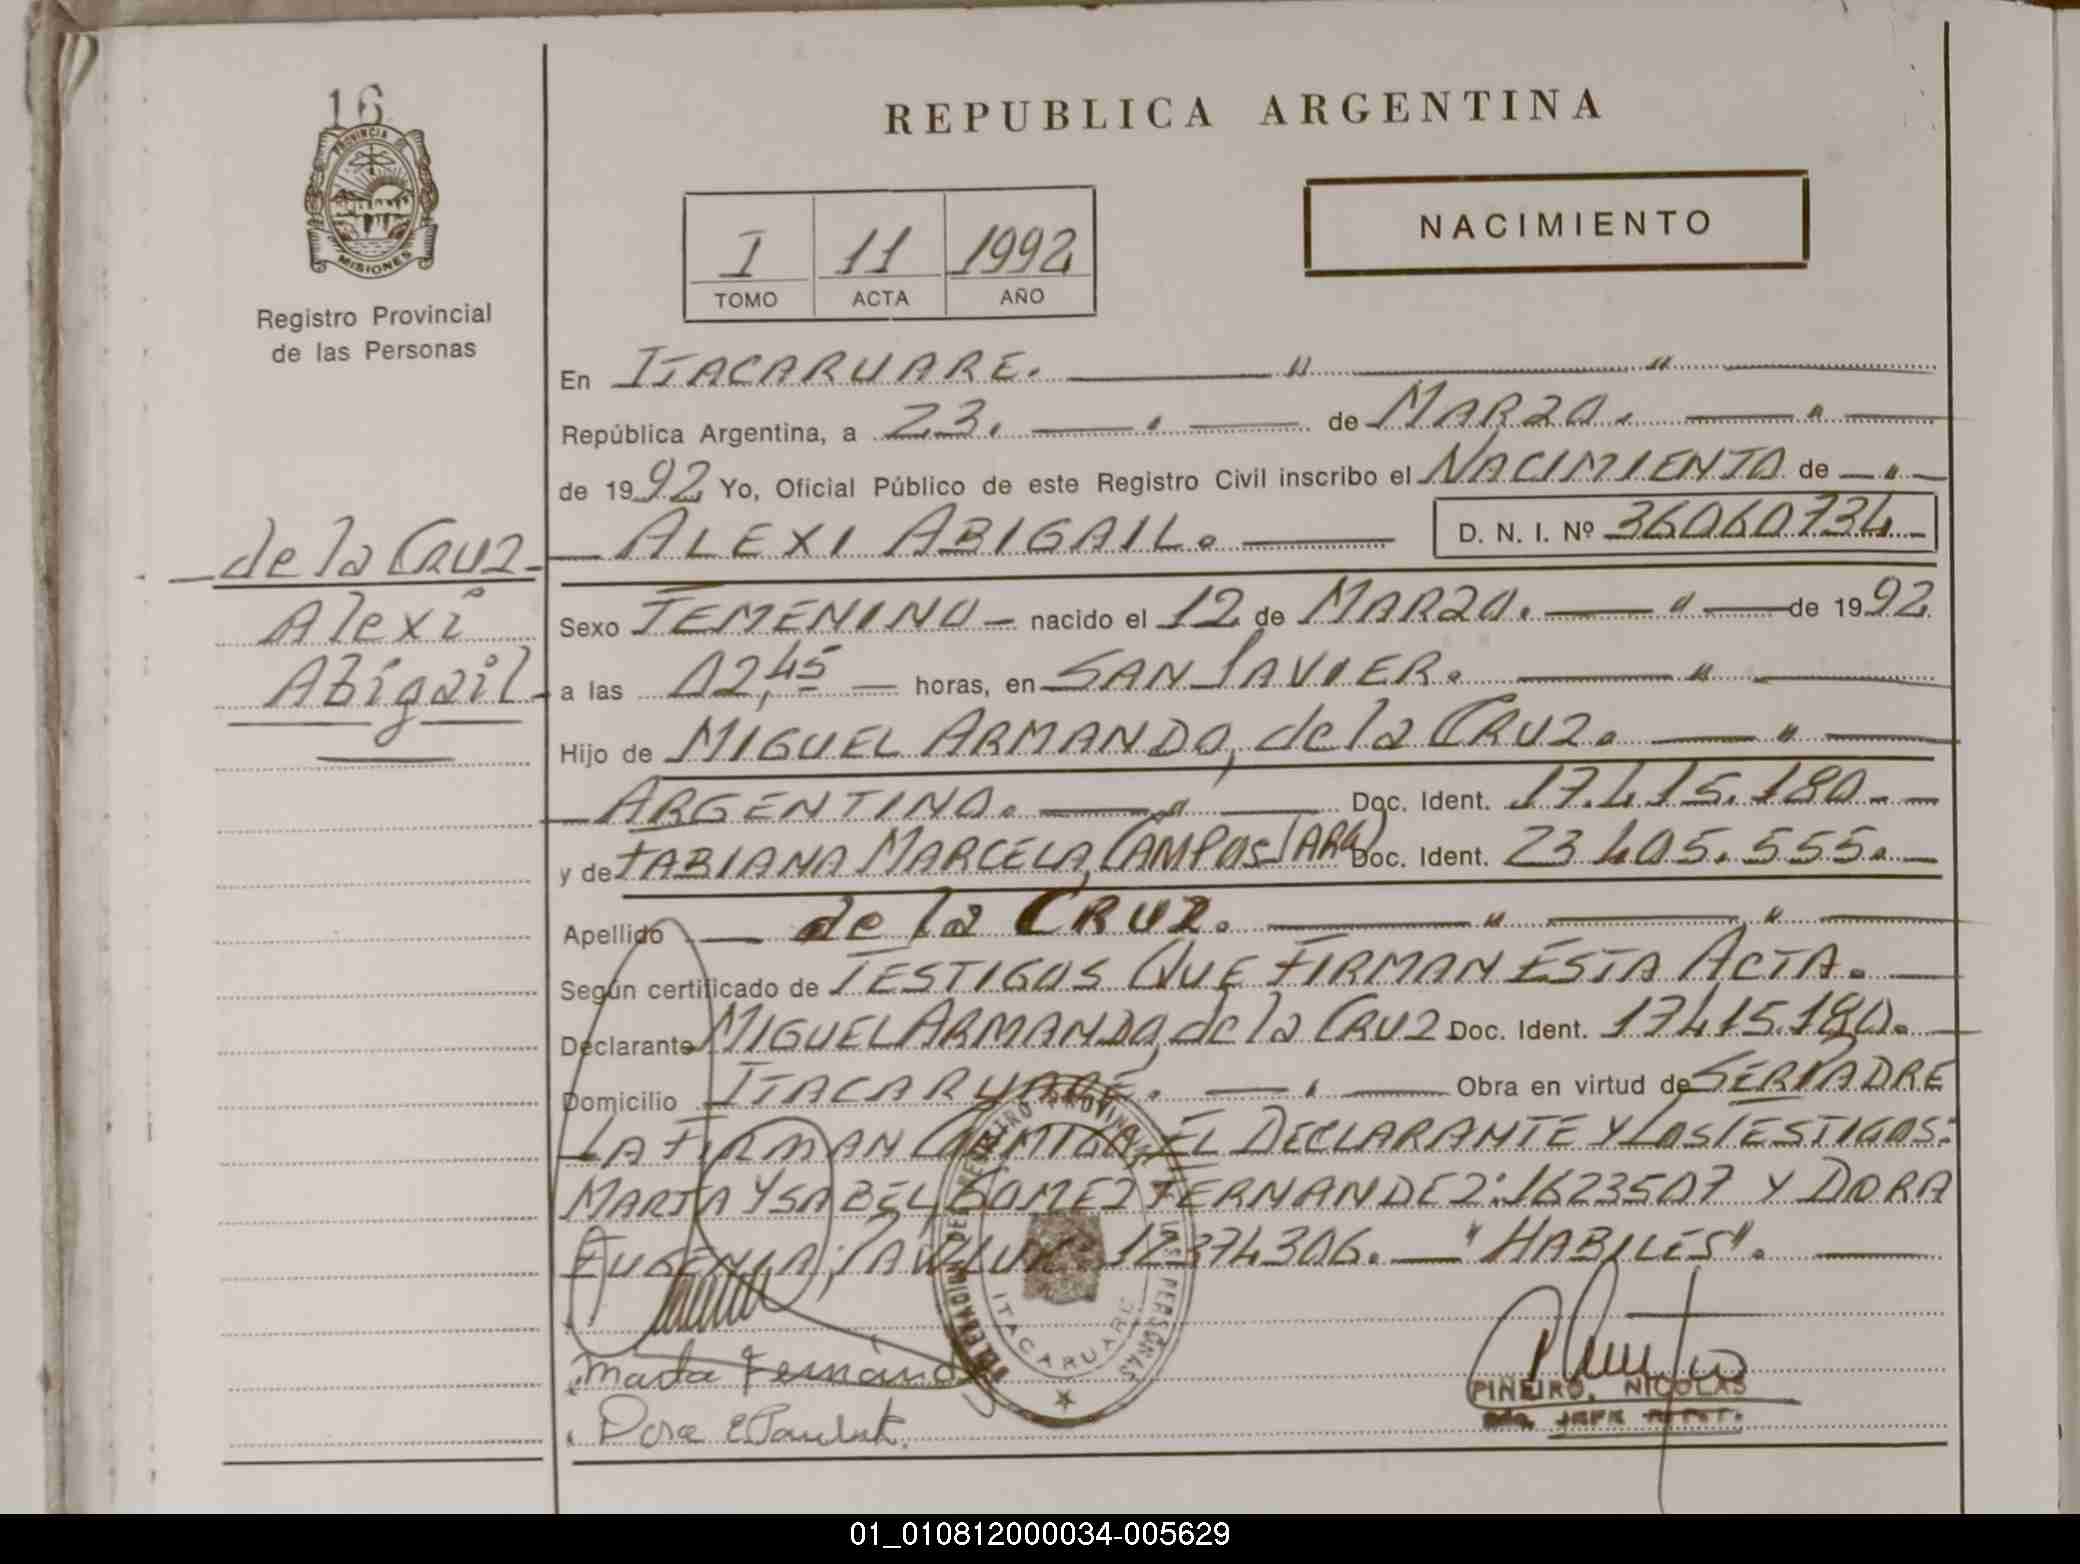 16
PROVINCIA DE
MISIONES
Registro Provincial
de las Personas
de la Cruz
Alexi
Abigail
REPUBLICA ARGENTINA
NACIMIENTO
I 11 1992
TOMO ACTA AÑO
En ITACARUARE. — " — " —
República Argentina, a 23. — " — de MARZO. — " —
de 1992 Yo, Oficial Público de este Registro Civil inscribo el NACIMIENTO de — " —
— ALEXI ABIGAIL. — D. N. I. Nº 36060734 —
Sexo FEMENINO — nacido el 12 de MARZO. — " — de 1992
a las 02,45 — horas, en SAN JAVIER. — " —
Hijo de MIGUEL ARMANDO, de la CRUZ. — " —
— ARGENTINO. — " — Doc. Ident. 17.415.180 - —
y de FABIANA MARCELA, CAMPOS (ARG) Doc. Ident. 23.405.555. —
Apellido — de la CRUZ. — " — " —
Según certificado de TESTIGOS QUE FIRMAN ESTA ACTA. —
Declarante MIGUEL ARMANDO, de la CRUZ Doc. Ident. 17415180. —
Domicilio ITACARUARE. — " — Obra en virtud de SER PADRE
LA FIRMAN CONMIGO, EL DECLARANTE Y LOS TESTIGOS:
MARTA YSABEL GOMEZ FERNANDEZ: 1623507 Y DORA
EUGENIA, PAWLUK: 12374306. — "HABILES". —
DELEGACION DEL REGISTRO PROVINCIAL DE LAS PERSONAS
ITACARUARE
Marta Fernand
Dora E Pawluk.
PIÑEIRO, NICOLAS
01_010812000034-005629